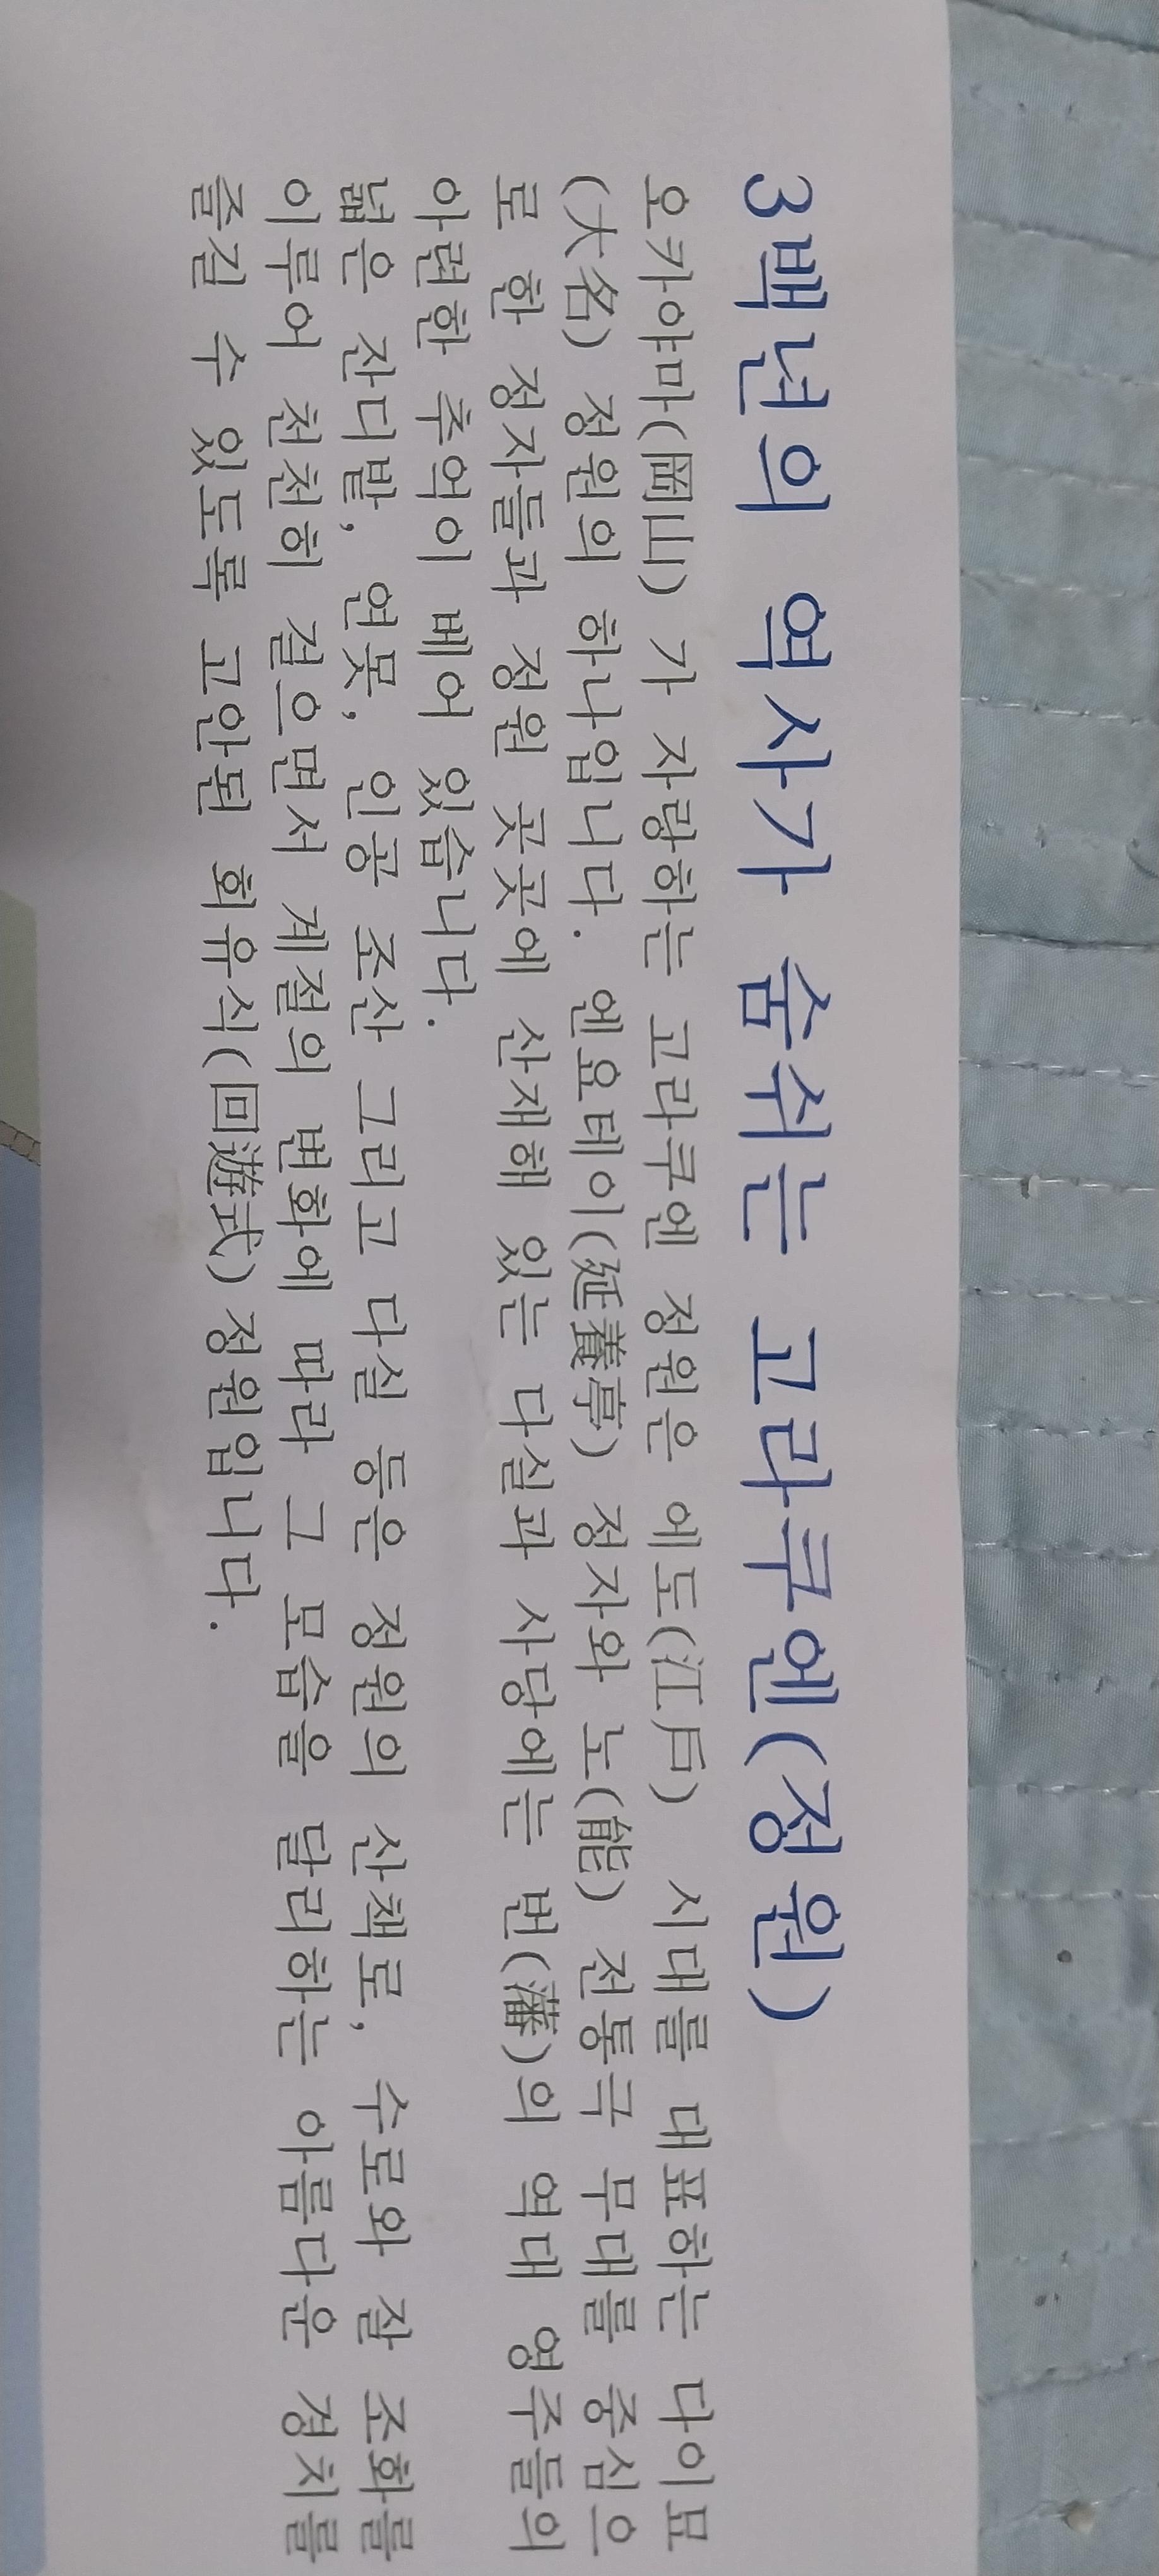 3백년의 역사가 숨쉬는 고라쿠엔(정원)
오카야마(岡山) 가 자랑하는 고라쿠엔 정원은 에도(江戶) 시대를 대표하는 다이묘
(大名) 정원의 하나입니다. 엔요테이(延養亭) 정자와 노(能) 전통극 무대를 중심으
로 한 정자들과 정원 곳곳에 산재해 있는 다실과 사당에는 번(藩)의 역대 영주들의
아련한 추억이 베어 있습니다.
넓은 잔디밭, 연못, 인공 조산 그리고 다실 등은 정원의 산책로, 수로와 잘 조화를
이루어 천천히 걸으면서 계절의 변화에 따라 그 모습을 달리하는 아름다운 경치를
즐길 수 있도록 고안된 회유식(回遊式) 정원입니다.